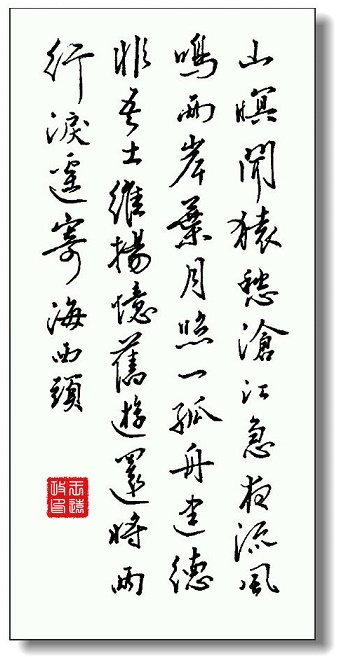 山暝聞猿愁滄江急夜流風
鳴兩岸葉月照一孤舟建德
非吾土維揚憶舊遊還將兩
行淚遙寄海西頭